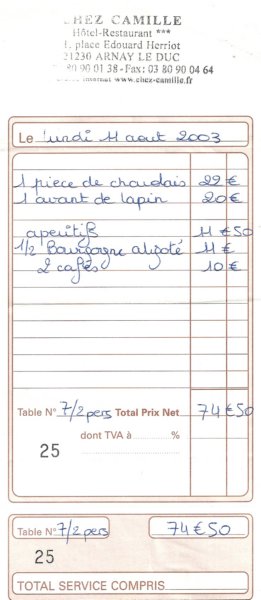 CHEZ CAMILLE
Hôtel-Restaurant ***
1, place Edouard Herriot
21230 ARNAY LE DUC
80 90 01 38 - Fax : 03 80 90 04 64
internet www.chez-camille.fr
Le lundi 11 aout 2003
1 piece de charolais 22 €
1 avant de lapin 20 €
aperitifs 11 € 50
1/2 Bourgogne aligoté 11 €
2 cafés 10 €
Table N° 7/2 pers Total Prix Net 74 € 50
dont TVA à .......... %
25
Table N° 7/2 pers 74 € 50
25
TOTAL SERVICE COMPRIS